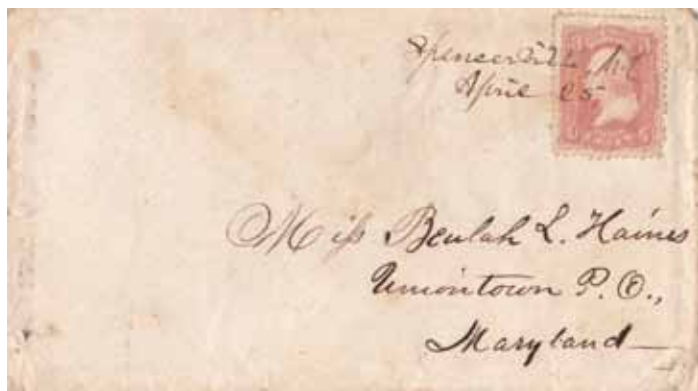 Spencerville, Md
April 25
Miss Beulah L. Haines
Uniontown P. O.,
Maryland